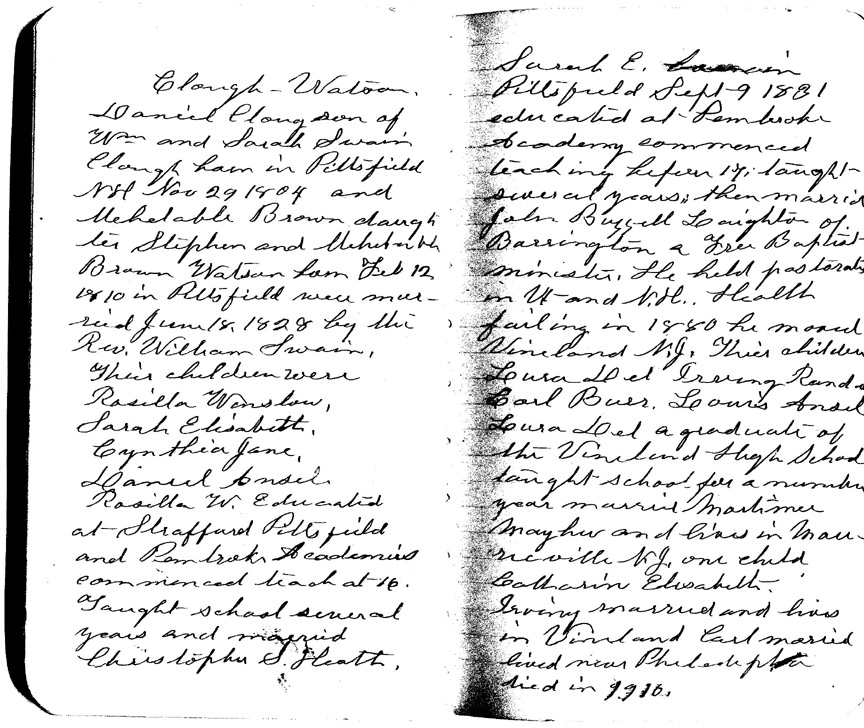 Clough - Watson.
Daniel Cloug son of
Wm and Sarah Swain
Clough born in Pittsfield
NH Nov 29 1804 and
Mehetable Brown daugh
ter Stephen and Mehetable
Brown Watson born Feb 12
1810 in Pittsfield were mar-
ried June 18, 1828 by the
Rev. William Swain,
Their children were
Rosilla Winslow,
Sarah Elisabeth,
Cynthia Jane,
Daniel Ansel.
Rosilla W. Educated
at Strafford Pittsfield
and Pembroke Academies
commenced teach at 16.
Taught school several
years and married
Christopher S. Heath.
Sarah E. born in
Pittsfield Sept 9 1831
educated at Pembroke
Academy commenced
teaching before 17; taught
several years; then married
John Buzzell Laighton of
Barrington a Free Baptist
minister. He held pastorates
in Vt and N.H.. Health
failing in 1880 he moved
Vineland N.J. Their children
Lura Del Irving Rand
Carl Burr. Louis Ansel
Lura Del a graduate of
the Vineland High School
taught school for a number
year married Mortimer
Mayhew and lives in Mau-
riceville N.J, one child
Catharin Elisabeth.
Irving married and lives
in Vineland Carl married
lived near Philadelphia
died in 1910.